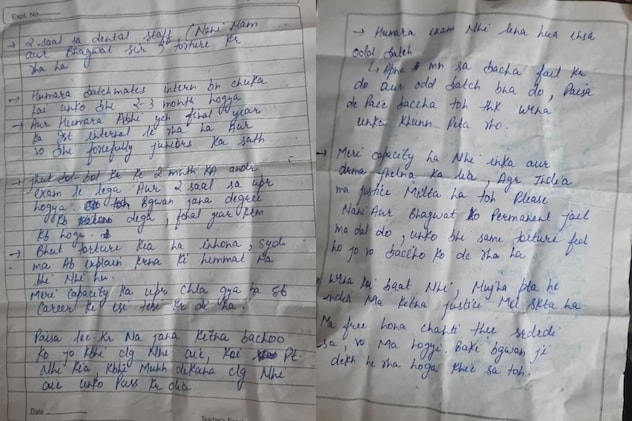 Expt. No.
→ 2 saal sa dental staff (Nani Mam
aur Bhagwat Sir torture kr
rha ha
→ Humara batchmates intern bn chuka
hai unko bhi 2-3 month hogya
→ Aur Humara Abhi yeh final year
ka 1st internal le rha ha Aur
vo bhi forcefully juniors ka sath
→ jhut bol bol kr ke 2 month KA andr
exam le lega Aur 2 saal sa upr
hogya. Bgwan jana degree
kb dega, final year ktm
kb hoga.
→ Bhut torture kia ha inhona,
ma Ab explain krna ki himmat ha
bhi Nhi hu.
Meri capacity ka upr chla gya ha sb
Career ki esi tesi kr di ha.
Paisa lee kr Na jana kitna bachoo
ko jo kbhi clg Nhi aie, koi Pt.
Nhi kia, kbhi Muhh dikana clg Nhi
aie unko Pass kr dia
Date
Teacher's
→ Humara exam Nhi lena hua
odd batch
↳ Apna mn sa bacha fail kr
do aur odd batch bna do, Paisa
de Paee baccha toh thk wrna
unka khunn Pita rho.
→ Meri capacity ha Nhi inka aur
drma jhelna ka lia, Agr India
ma justice Milta ha toh Please
Nani Aur Bhagwat ko Permanent jail
ma dal do, unko bhi same torture feel
ho jo vo bacho ko de rha ha
wrna koi baat Nhi, Mujha pta he
India Ma ketna justice Mel skta ha
Ma free hona chahti thee
sa, vo Ma hogyi. Baki bgwan ji
dekh he rha hoga khee sa toh.